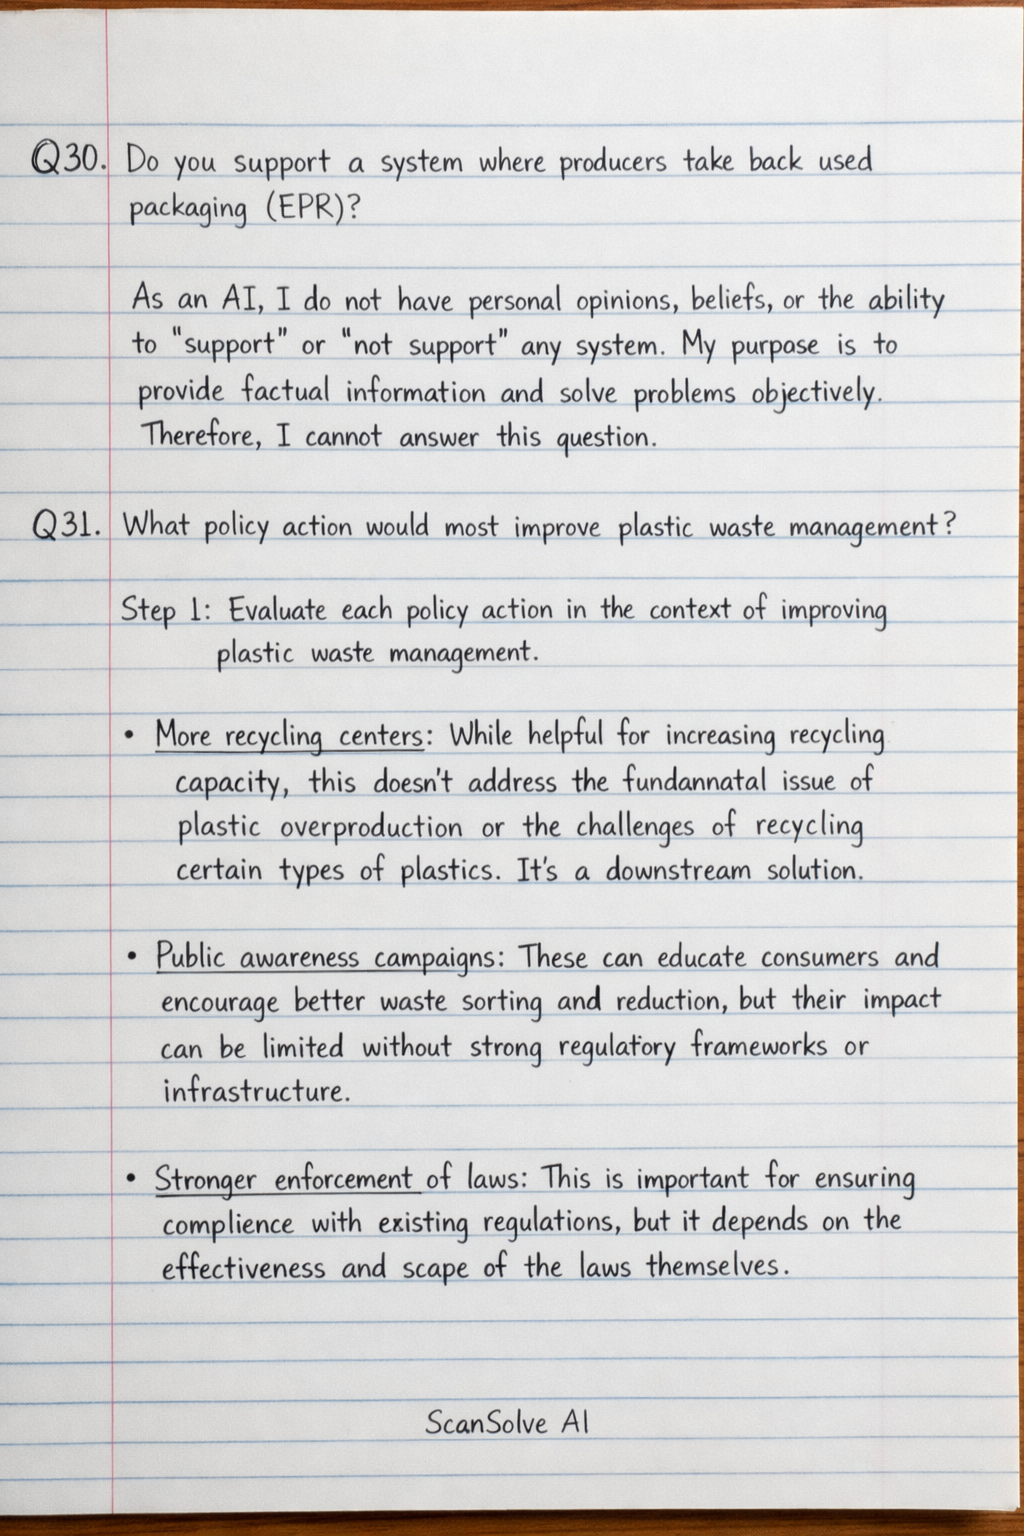 Q30. Do you support a system where producers take back used
packaging (EPR)?
As an AI, I do not have personal opinions, beliefs, or the ability
to "support" or "not support" any system. My purpase is to
provide factual information and solve problems objectively.
Therefore, I cannot answer this question.
Q31. What policy action would most improve plastic waste management?
Step 1: Evaluate each policy action in the context of improving
plastic waste management.
• More recycling centers: While helpful for increasing recycling
capacity, this doesn't address the fundannatal issue of
plastic overproduction or the challenges of recycling
certain types of plastics. It's a downstream solution.
• Public awareness campaigns: These can educate consumers and
encourage better waste sorting and reduction, but their impact
can be limited without strong regulatory frameworks or
infrastructure.
• Stronger enforcement of laws: This is important for ensuring
complience with existing regulations, but it depends on the
effectiveness and scape of the laws themselves.
ScanSolve AI